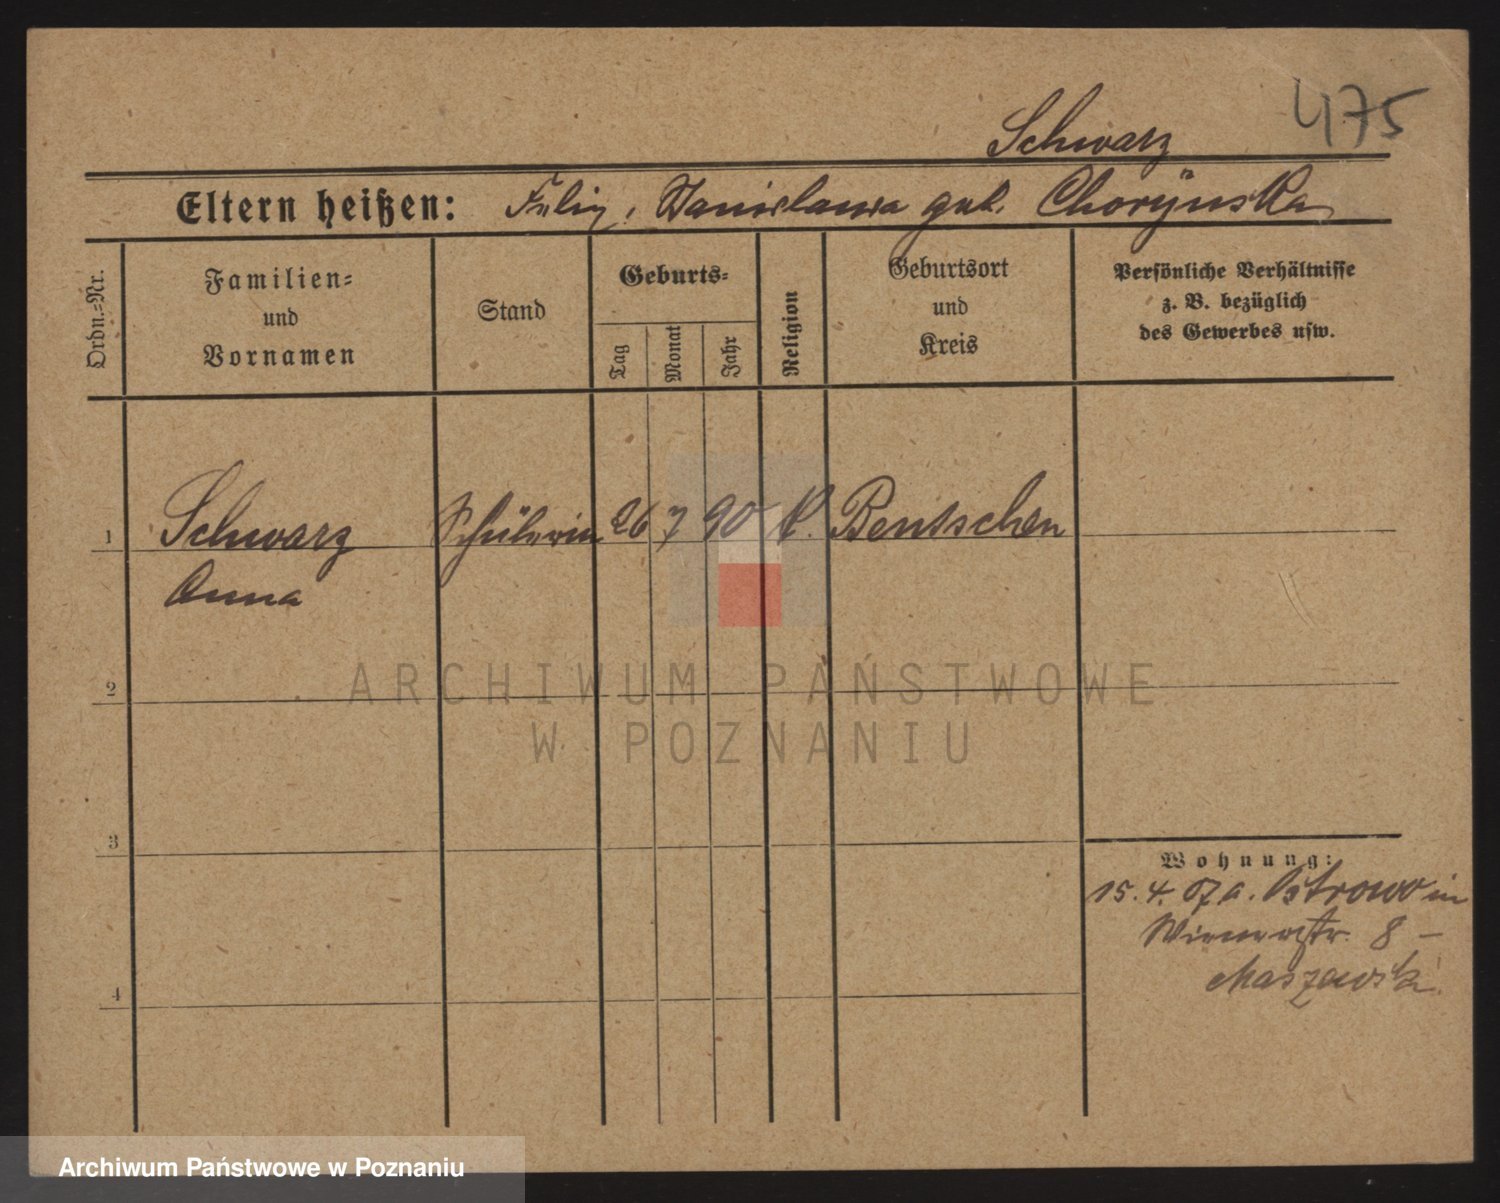 475
Schwarz
Eltern heißen: Felix, Stanislawa geb. Choryńska
Ordn.=Nr.
Familien=
und
Vornamen
Stand
Geburts=
Tag
Monat
Jahr
Religion
Geburtsort
und
Kreis
Persönliche Verhältnisse
z. B. bezüglich
des Gewerbes usw.
1 Schwarz Schülerin 26 7 90 k. Bentschen
Anna
2
3
4
Wohnung:
15. 4. 07 a. Ostrowo in
Wienerstr. 8 –
Maszewski
ARCHIWUM PAŃSTWOWE
W POZNANIU
Archiwum Państwowe w Poznaniu